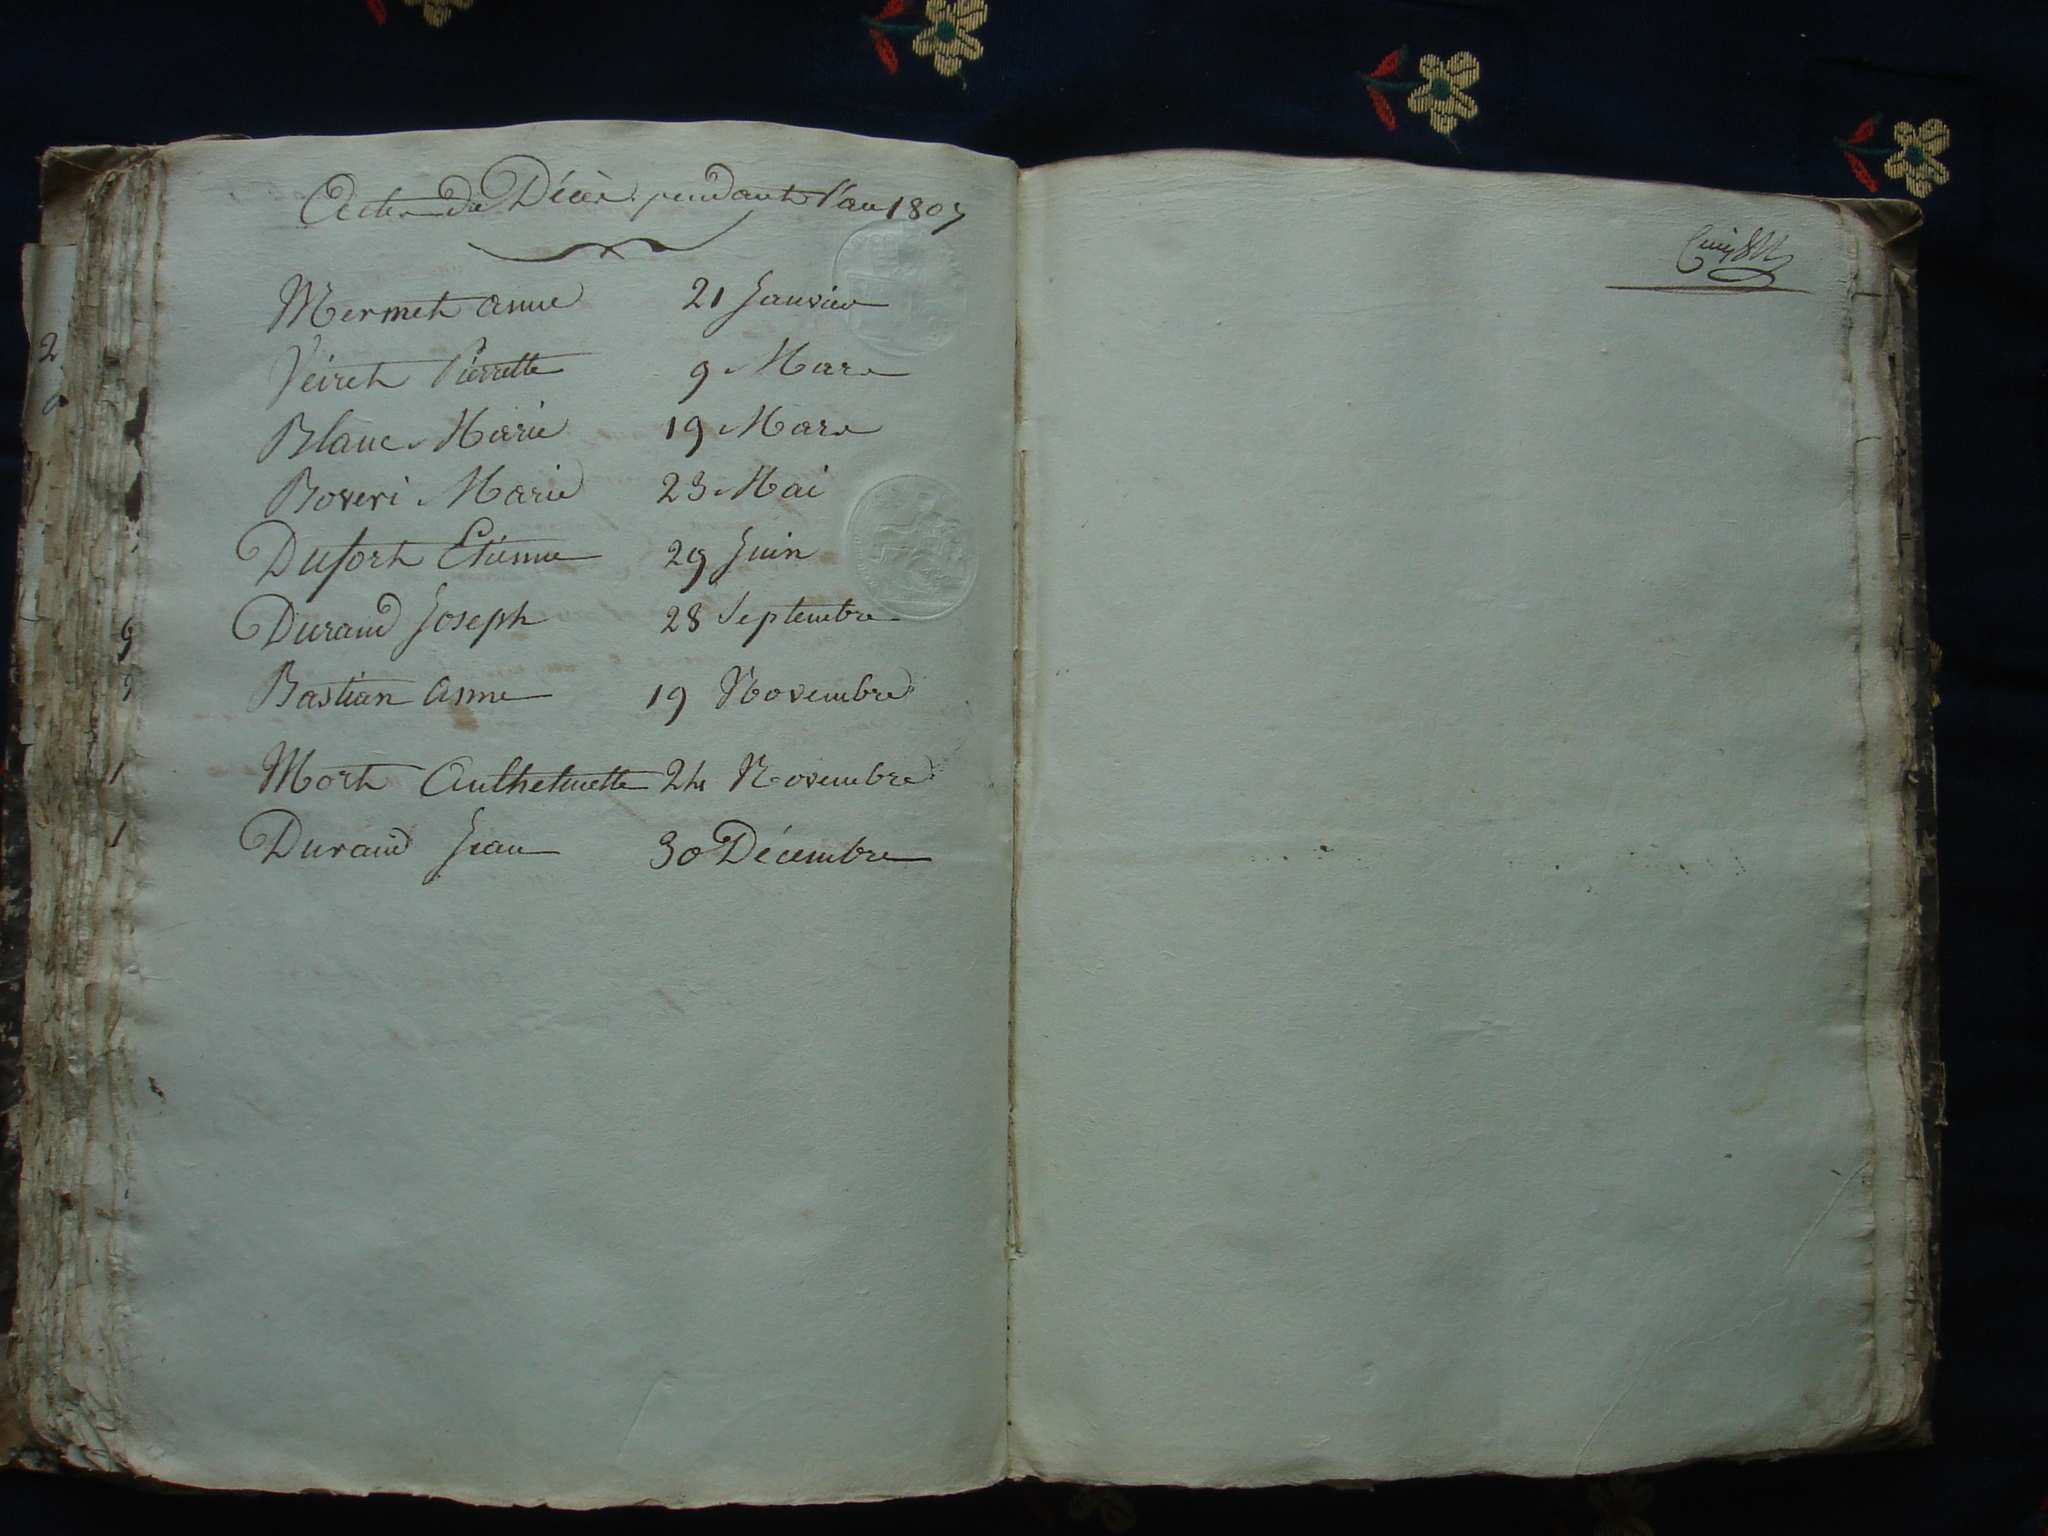 Actes de Décès pendant l'an 1807
Mermet Anne 21 Janvier
Veiret Pierrette 9 Mars
Blanc Marie 19 Mars
Boveri Marie 23 Mai
Dufort Etienne 29 Juin
Durand Joseph 28 Septembre
Bastian Anne 19 Novembre
Mort 24 Novembre
Durand Jean 30 Décembre